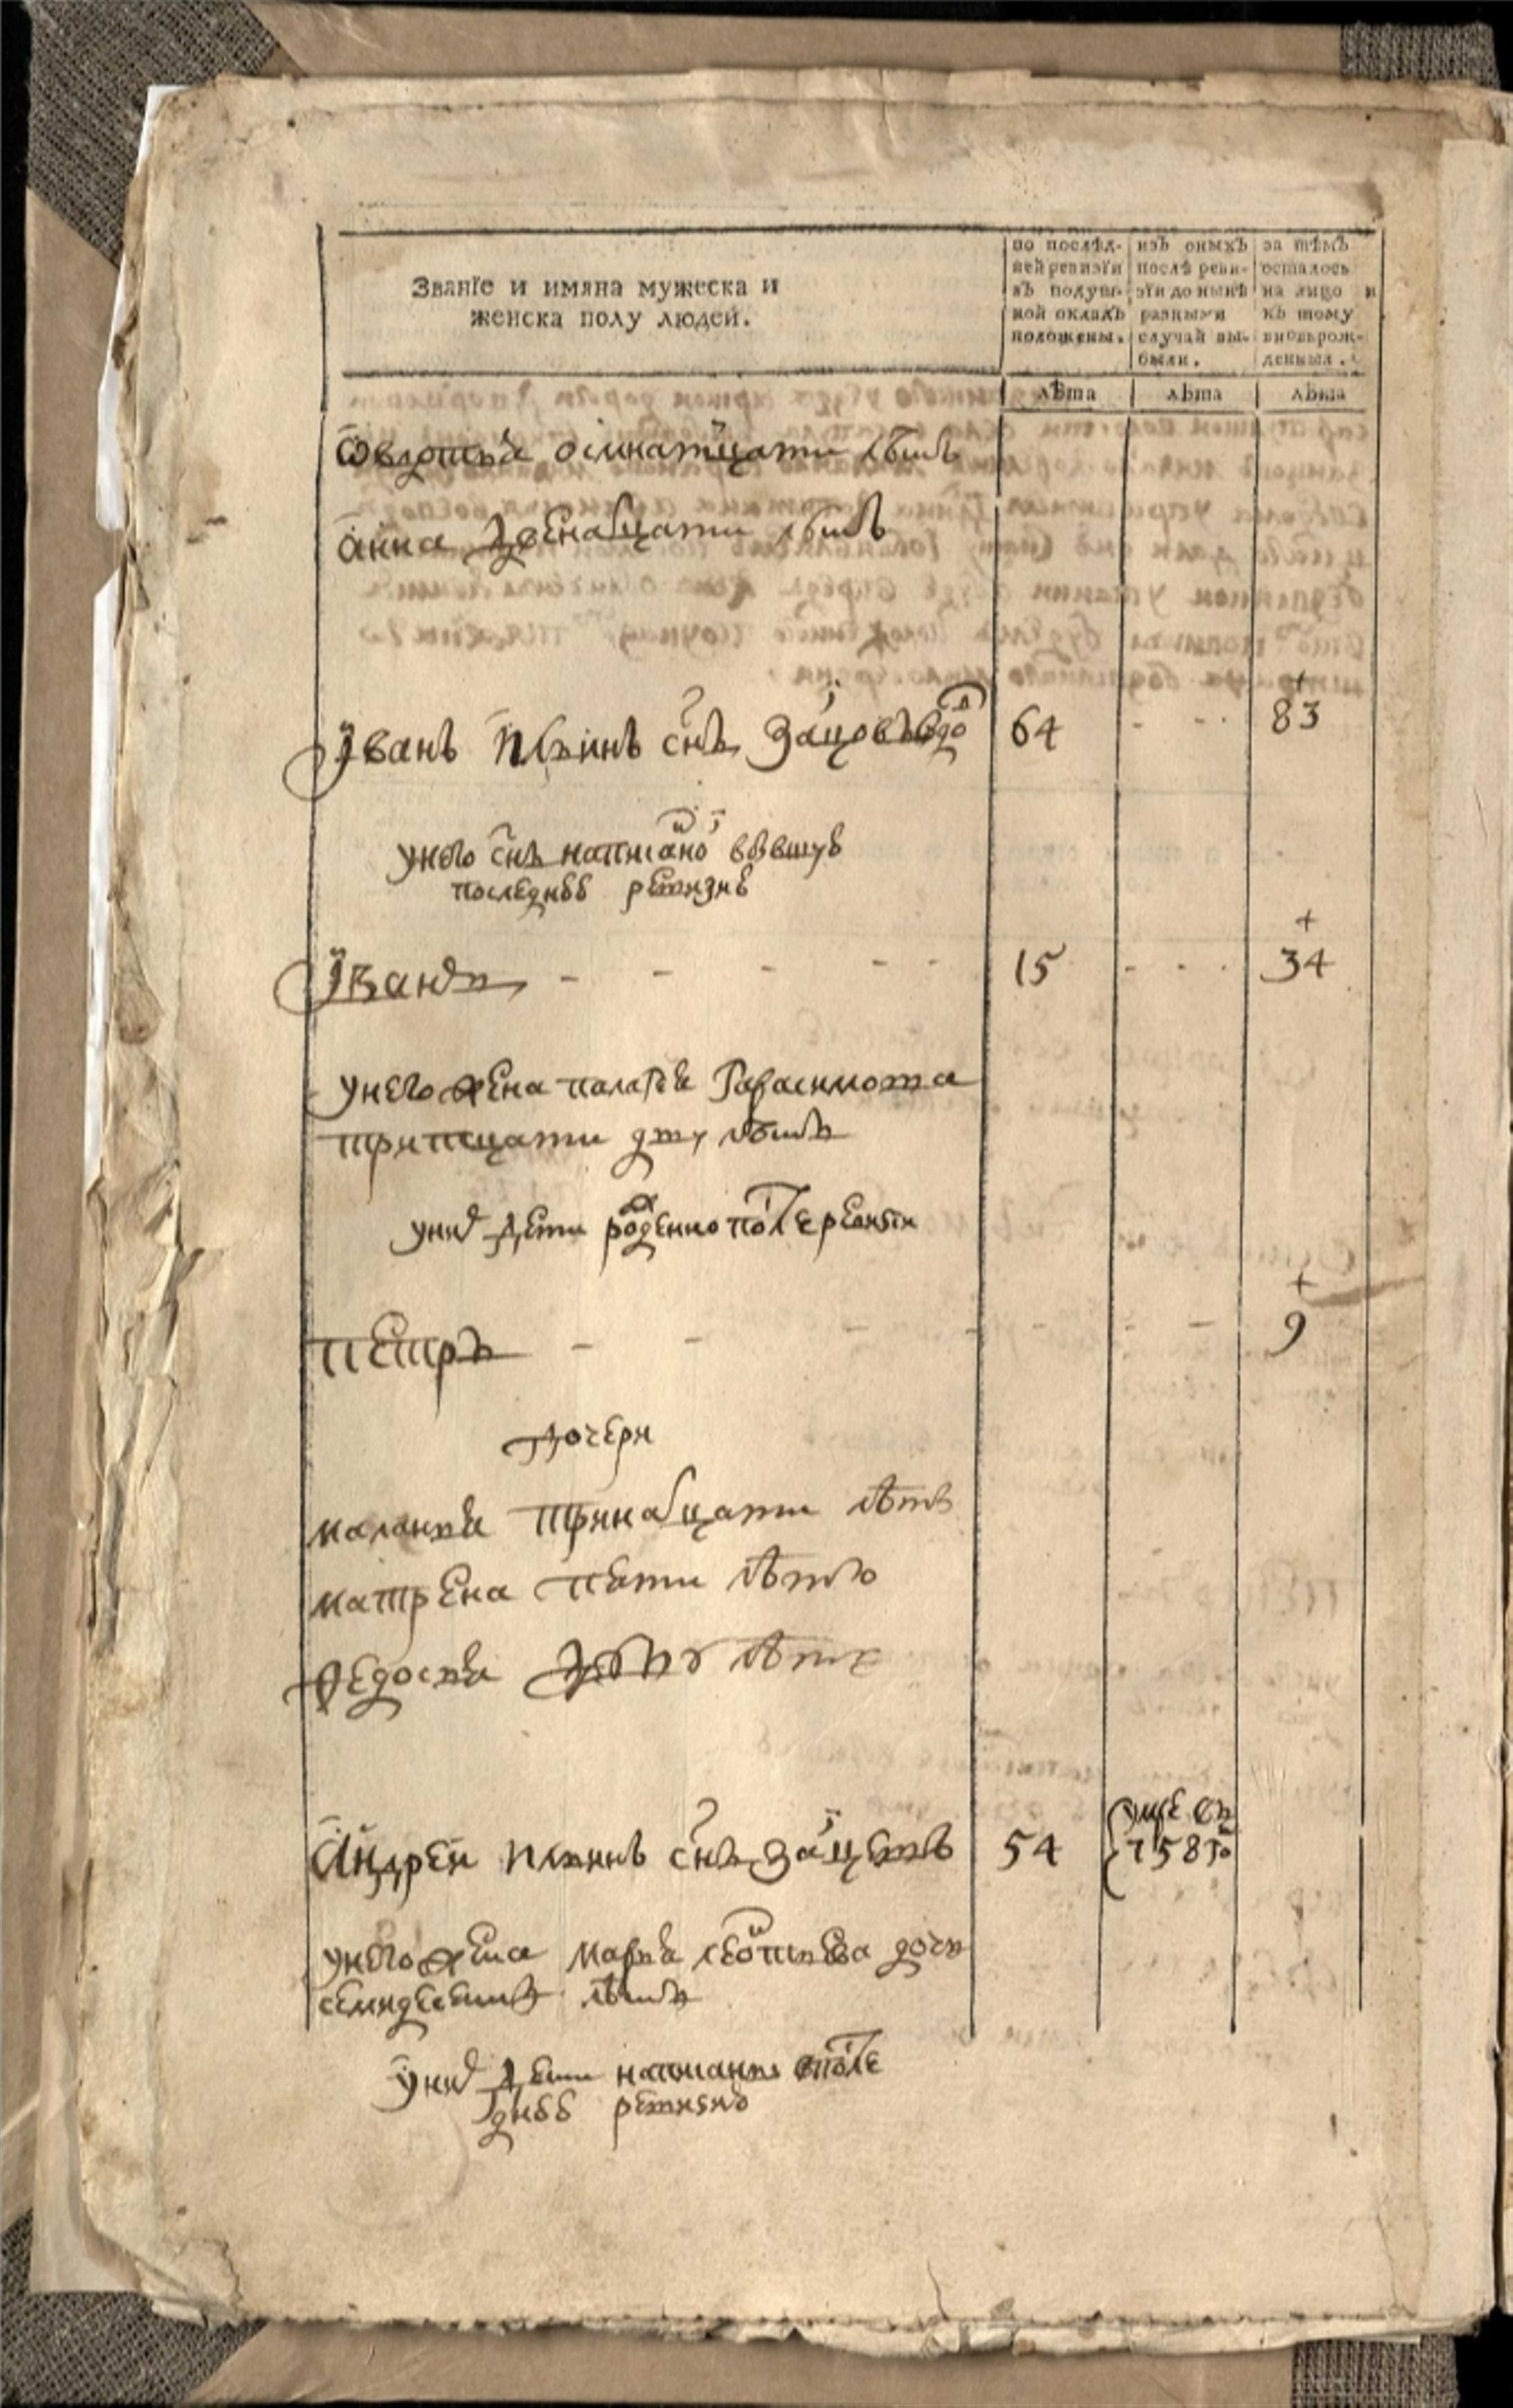 Званїе и имяна мужеска и
женска полу людей.
по послѣд-
ней ревизїи
въ подуш-
ной окладъ
положены.
изъ оныхъ
послѣ реви-
зїи до нынѣ
разными
случай вы-
были.
за тѣмъ
осталось
на лицо и
къ тому
вновьрож-
денныя.
лѣта лѣта лѣта
осмнатцати лѣтъ
анна двенадцати лѣтъ
Їванъ Ильинъ снъ Заицовъ вдо 64 - - - 83
унего снъ написанои бывшуѣ
последнѣѣ ревизиѣ
Їванъ - - - - - 15 - - - 34
унего жена палагея Гарасимова
тритцати дву лѣтъ
уних дети рожденно после ревизїи
петръ - - - - - - - 9
дочери
маланья тринадцати лѣтъ
матрена пяти лѣтъ
федосья лѣтъ
Андреи Ильинъ снъ Заицевъ 54 умре въ
758 го
унего жена марья леонтьева дочь
семидесяти лѣтъ
уних дети написаны впосле
днѣѣ ревизиѣ